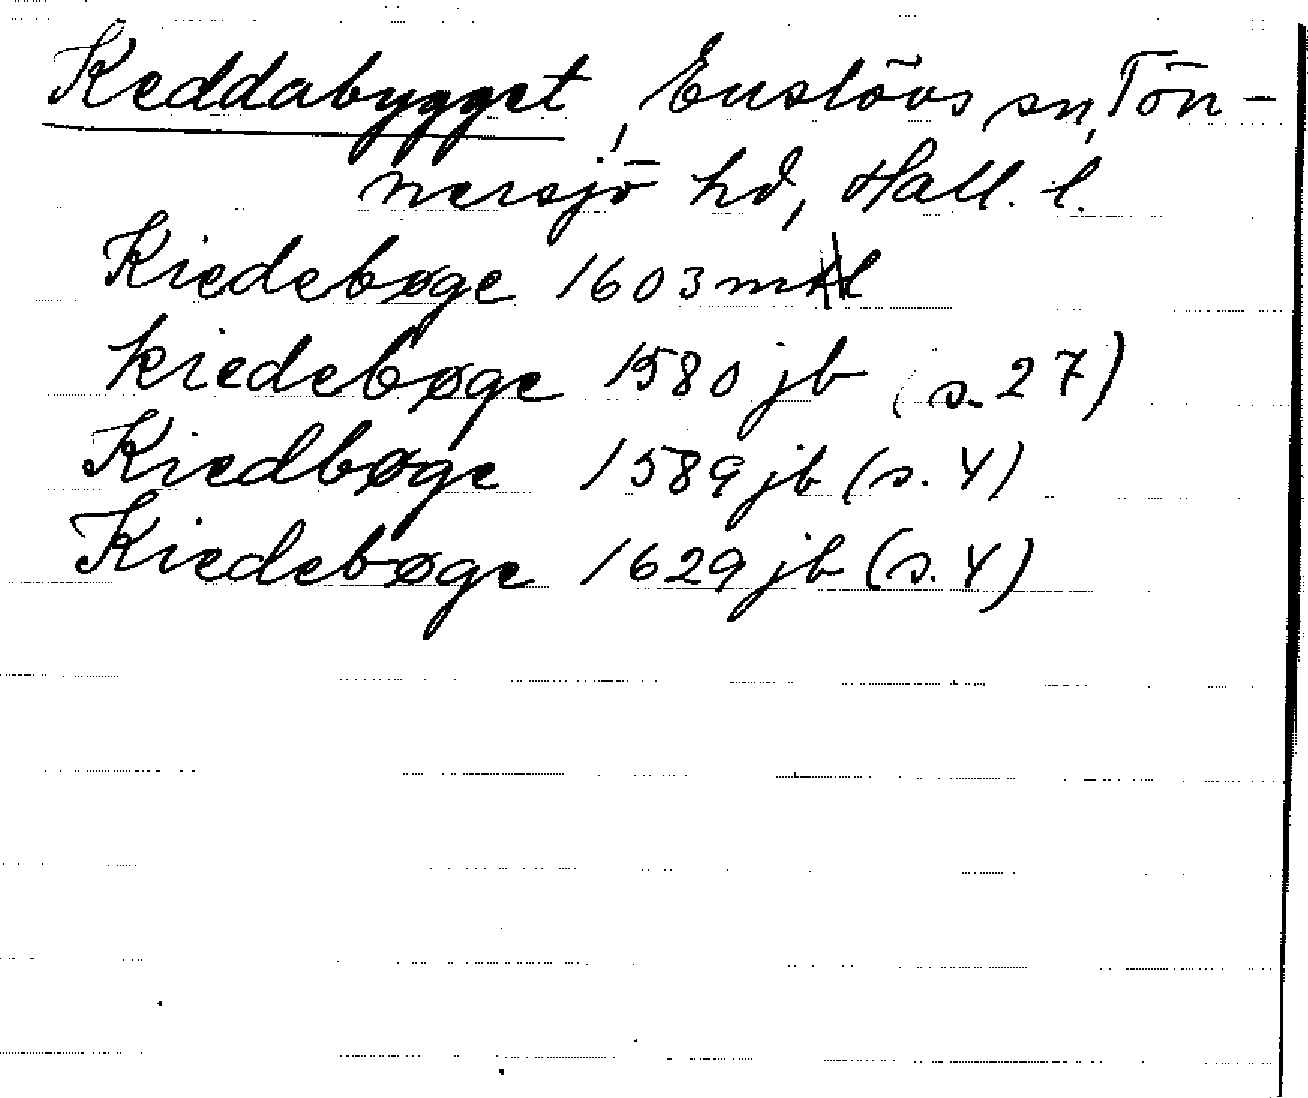 Keddabygget, Enslövs sn, Tön-
nersjö hd, Hall. l.
Kiedebøge 1603
kiedebøge 1580 jb (s. 27)
Kiedbøge 1589 jb (s. 4)
Kiedebøge 1629 jb (s. 4)